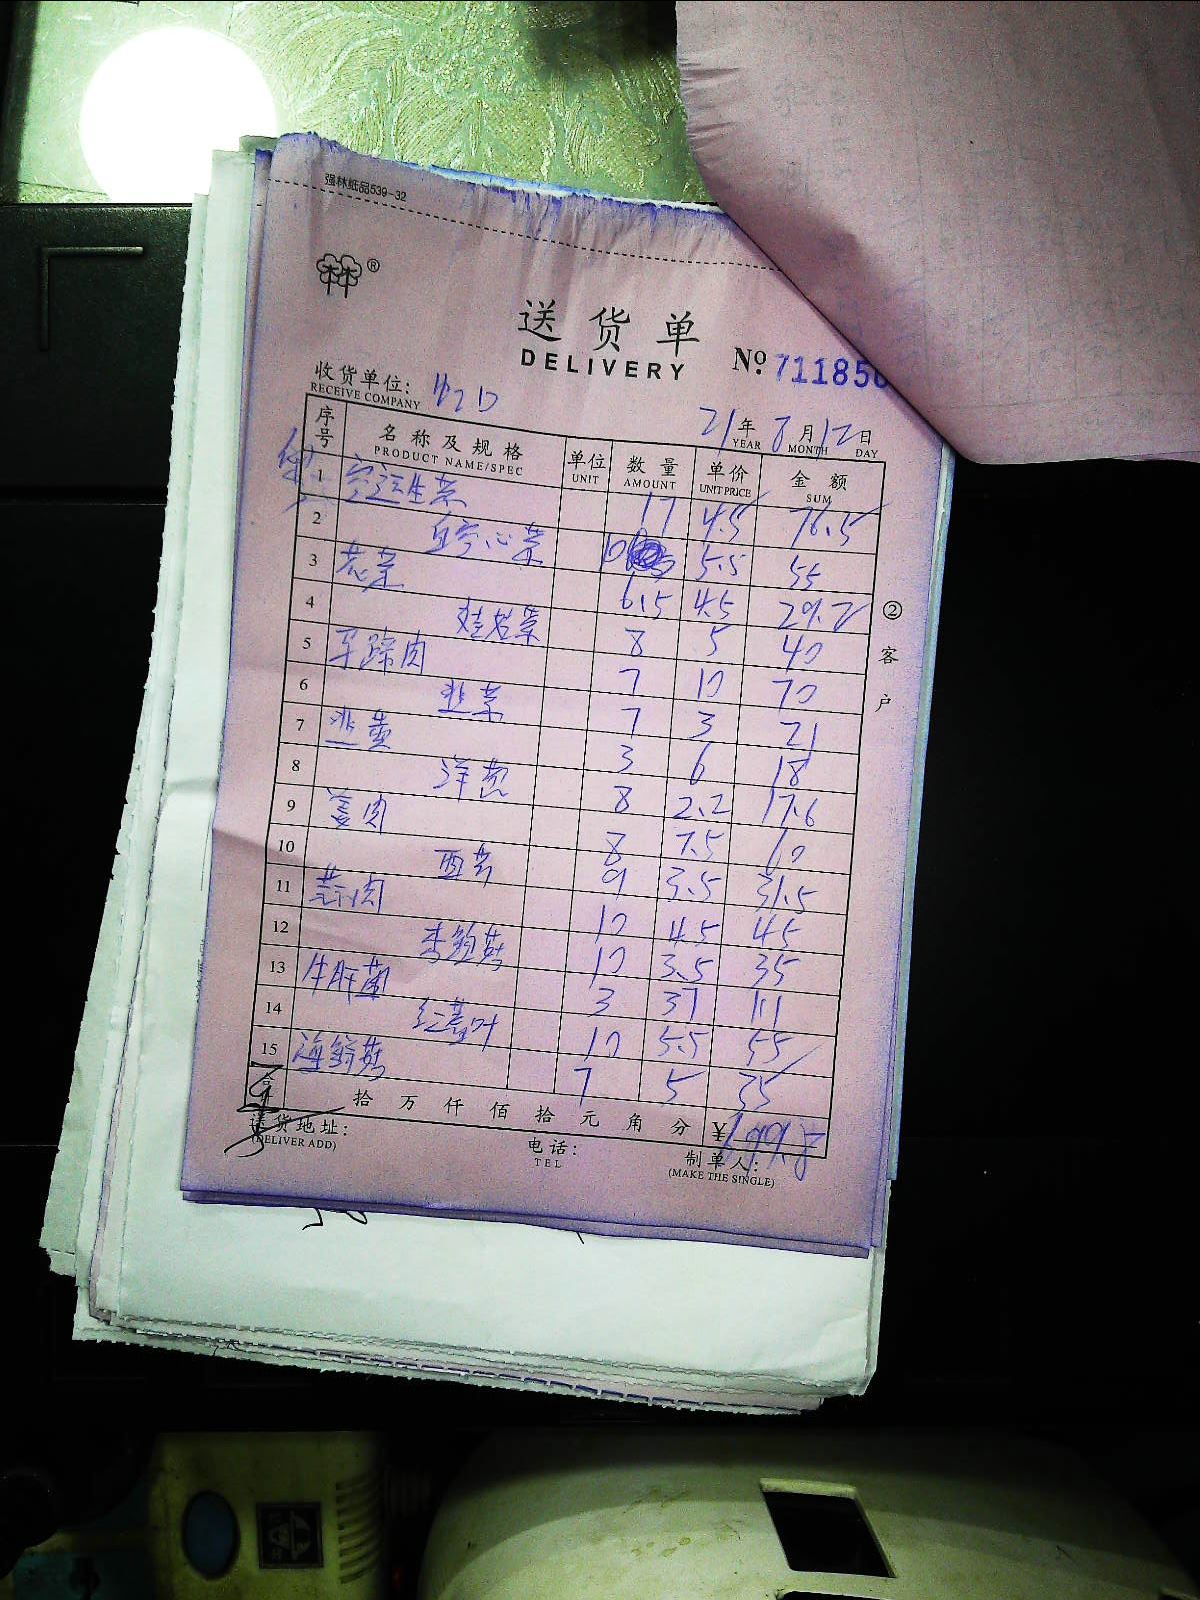 强林纸品539-32
®
送货单
DELIVERY
№ 711850
收货单位:
RECEIVE COMPANY
21年8月12日
YEAR MONTH DAY
序号 名称及规格 单位 数量 单价 金额
PRODUCT NAME/SPEC UNIT AMOUNT UNIT PRICE SUM
1 生菜 17 4.5 76.5
2 空心菜 10 5.5 55
3 葱菜 6.5 4.5 29.2
4 娃娃菜 8 5 40
5 肉 7 10 70
6 韭菜 7 3 21
7 韭黄 3 6 18
8 洋葱 8 2.2 17.6
9 姜肉 8 7.5 60
10 西芹 9 3.5 31.5
11 肉 10 4.5 45
12 杏鲍菇 10 3.5 35
13 牛肝菌 3 37 111
14 红薯叶 10 5.5 55
15 海鲜菇 7 5 35
拾 万 仟 佰 拾 元 角 分 ¥
送货地址:
(DELIVER ADD)
电话:
TEL
制单人:
(MAKE THE SINGLE)
②客户